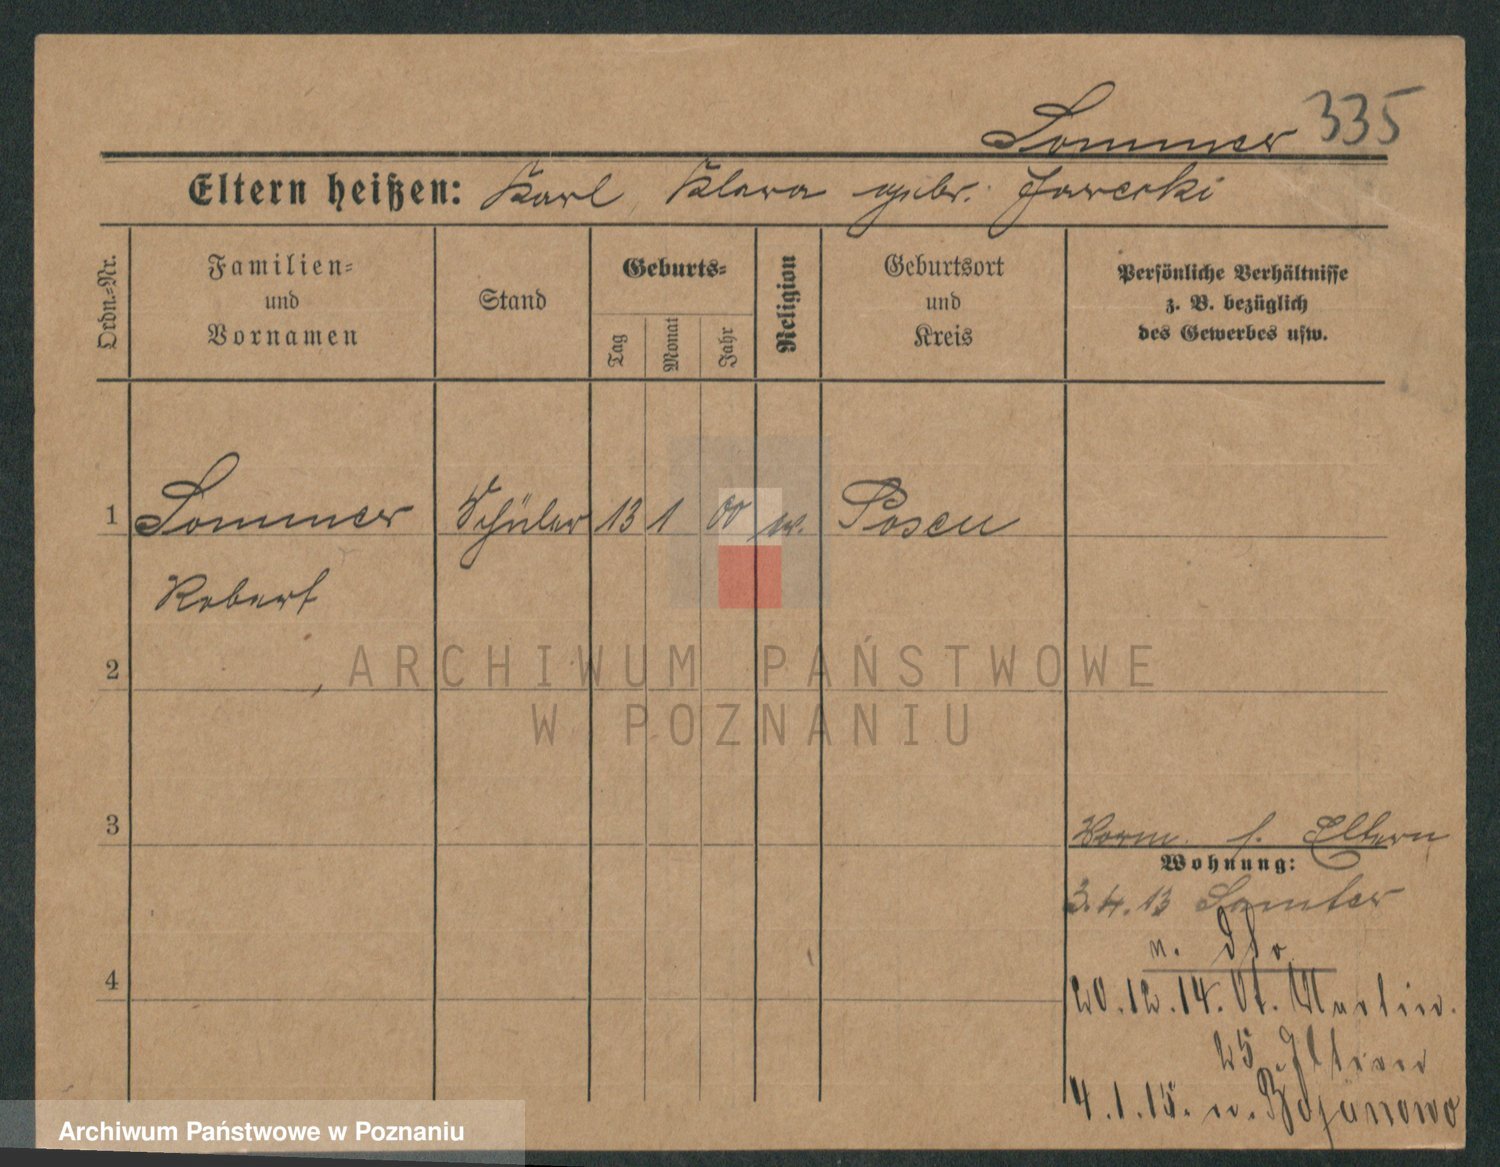 Sommer 335
Eltern heißen: Karl Klara gebr. Jarecki
Ordn.-Nr.
Familien=
und
Vornamen
Stand
Geburts=
Tag
Monat
Jahr
Religion
Geburtsort
und
Kreis
Persönliche Verhältnisse
z. B. bezüglich
des Gewerbes usw.
1 Sommer Schüler 13 1 00 Posen
Robert
2
ARCHIWUM PAŃSTWOWE
W POZNANIU
3
Vorm. s. Eltern
Wohnung:
3.4.13 Samter
4
20.12.14. St. Martin
25 Eltern
4.1.15. n. Bojanowo
Archiwum Państwowe w Poznaniu